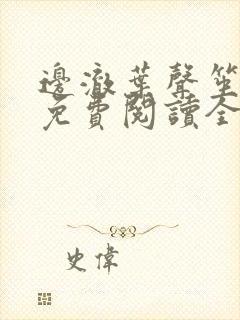 邊澈葉聲笙
免費閱讀全
史偉